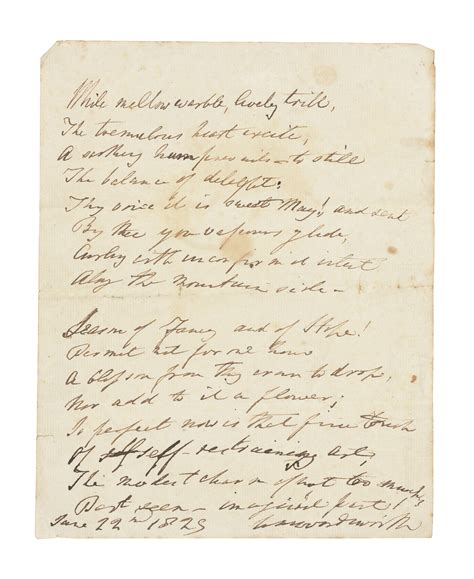 While mellow warble, lively trill,
The tremulous heart excite,
A soothing hum prevails – to still
The balance of delight:
Thy voice it is sweet May! and sent
By thee yon vapours glide,
Curling with unconfirmed intent
Along the mountain side –
Season of Fancy and of Hope!
Permit not for one hour
A blossom from thy crown to drop,
Nor add to it a flower;
So perfect now is that fine touch
Of self-restraining art,
The modest charm of not too much,
Part seen – imagined part!
June 22nd Wm Wordsworth